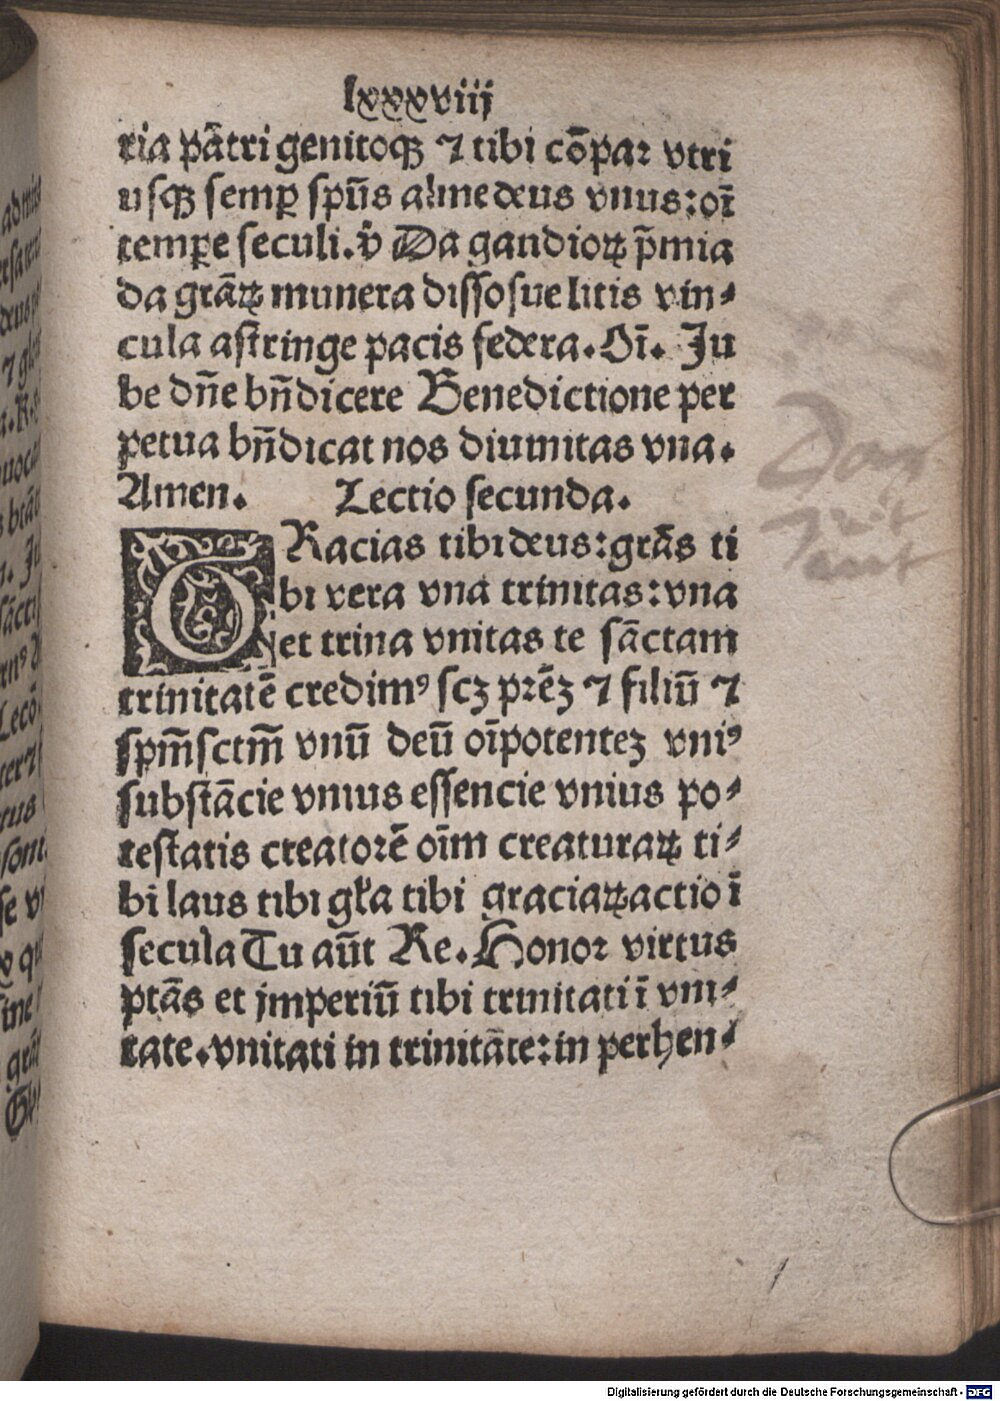 lxxxviij
ria pãtri genitoqꝫ ⁊ tibi cõpar vtri
usqꝫ semꝑ spũs alme deus vnus: oĩ
temꝑe seculi. v̾ Da gaudioꝝ p̃mia
da grãꝝ munera dissosue litis vin⸗
cula astringe pacis federa. Oĩ. Ju
be dñe bñdicere Benedictione per
petua bñdicat nos diuinitas vna.
Amen. Lectio secunda.
GRacias tibi deus: grãs ti
bi vera vna trinitas: vna
et trina vnitas te sãctam
trinitatẽ credimꝰ scꝫ prẽꝫ ⁊ filiũ ⁊
spm̃sctm̃ vnũ deũ oĩpotenteꝫ vniꝰ
substãcie vnius essencie vnius po⸗
testatis creatorẽ oĩm creaturaꝝ ti⸗
bi laus tibi gl̃a tibi graciaꝝ actio ĩ
secula Tu aũt Re. Honor virtus
ptãs et jmperiũ tibi trinitati ĩ vni⸗
tate. vnitati in trinitãte: in perhen⸗
Digitalisierung gefördert durch die Deutsche Forschungsgemeinschaft - DFG